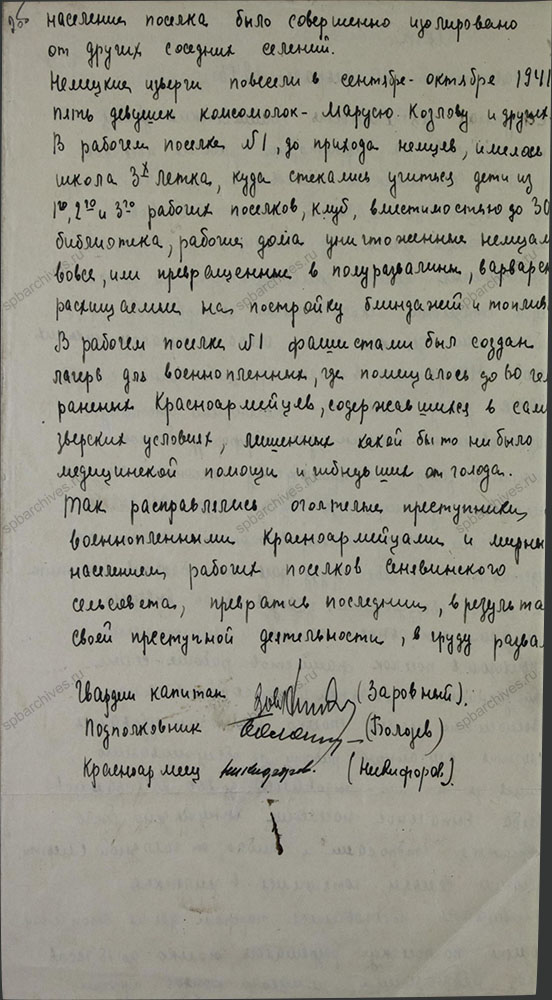 население поселка было совершенно изолировано
от других соседних селений.
Немецкие изверги повесели в сентябре-октябре 1941
пять девушек комсомолок-Марусю Козлову и других
В рабочем поселке №1, до прихода немцев, имелось
школа 3х летка, куда стекались учиться дети из
1го, 2го и 3го рабочих поселков, клуб, вместимостью до 30
библиотека, рабочие дома уничтоженные немцам
вовсе, или превращенные в полуразвалины, варварск
расхищаемые на постройку блиндажей и топлив
В рабочем поселке №1 фашистами был создан
лагерь для военнопленных, где помещалось до 60 чел
раненых Красноармейцев, содержавшихся в сам
зверских условиях, лишенных какой бы то ни было
медицинской помощи и гибнувших от голода.
Так расправлялись оголтелые преступники
военнопленными Красноармейцами и мирны
населением рабочих поселков Синявинского
сельсовета, превратив последнии, в результа
своей преступной деятельности, в груду развал
Гвардии капитан (Заровный).
Подполковник (Болоцев)
Красноармеец Никифоров. (Никифоров).
spbarchives.ru